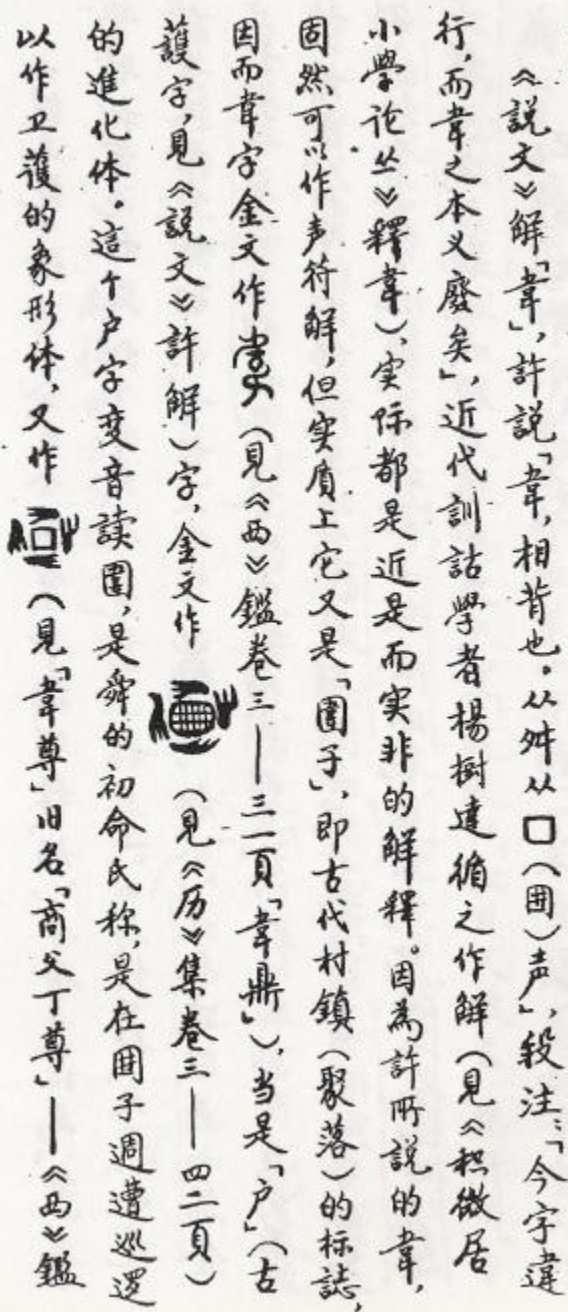 《說文》解「韋」，許説「韋，相背也。从舛从口（囲）声」，段注：「今字違
行，而韋之本义廢矣」，近代訓詁學者楊樹達循之作解（見《积微居
小學论丛》釋韋）、实际都是近是而实非的解釋。因為許所説的韋，
固然可以作声符解，但实质上它又是「圍子」，即古代村鎮（聚落）的标誌，
因而韋字金文作（見《西》鑑卷三——三一頁「韋鼎」），当是「户」（古
護字，見《説文》許解）字，金文作（見《历》集卷三——四二頁）
的進化体。這个户字变音读圍，是舜的初命氏称，是在囲子週遭巡逻
以作卫護的象形体，又作（見「韋尊」旧名「商父丁尊」——《西》鑑